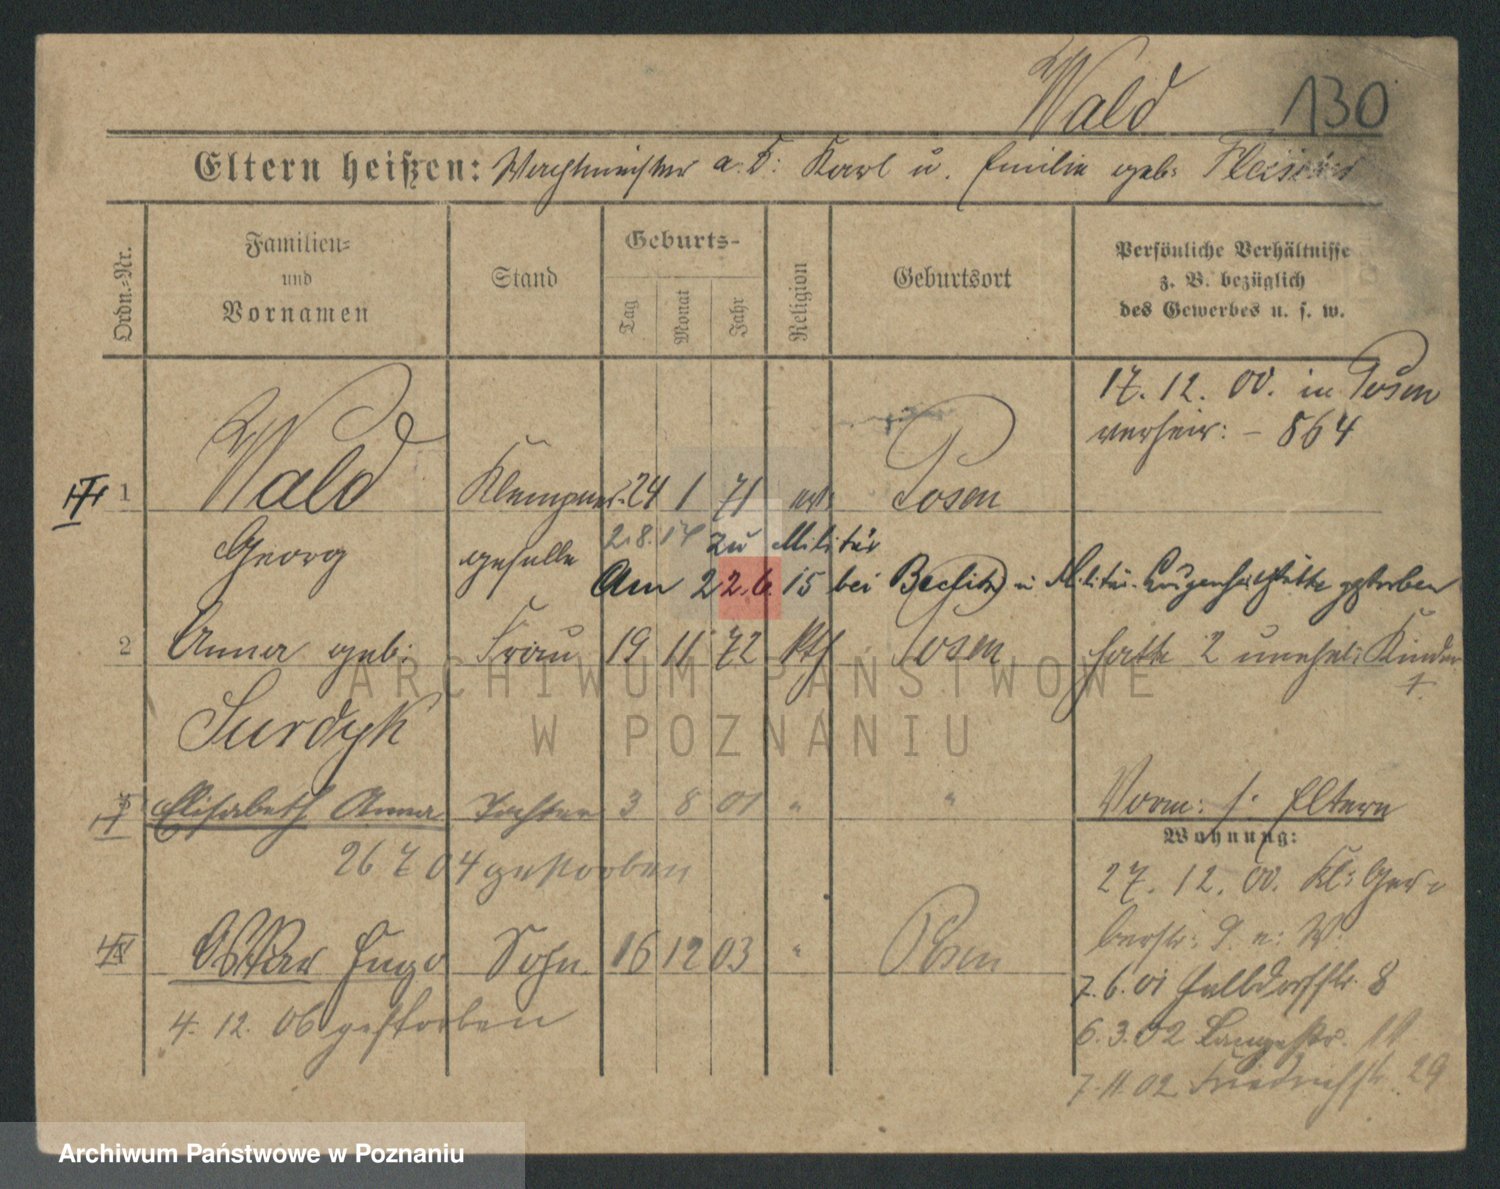 Wald 130
Eltern heißen: Wachtmeister a. D. Karl u. Emilie geb:
Ordn.-Nr.
Familien-
und
Vornamen
Stand
Geburts-
Tag
Monat
Jahr
Religion
Geburtsort
Persönliche Verhältnisse
z. B. bezüglich
des Gewerbes u. s. w.
17. 12. 00. in Posen
verheir: – 864
1 Wald Klempner- 24 1 71 Posen
Georg geselle 2.8.14 zu Militär
Am 22.6.15 bei gestorben
2 Anna geb: Frau 19 11 72 kth Posen hatte 2 unehel: Kinder
†
Surdyk
Elisabeth Anna Tochter 3 8 01 " " Vorm: s. Eltern
Wohnung:
26 7 04 gestorben
27. 12. 00. Kl: Ger-
berstr: 9. a: W.
Oskar Hugo Sohn 16 12 03 " Posen
7.6.01 Halbdorfstr. 8
4. 12. 06 gestorben
6.3.02 Langestr.
7.11.02 Friedrichstr. 29
ARCHIWUM PAŃSTWOWE
W POZNANIU
Archiwum Państwowe w Poznaniu